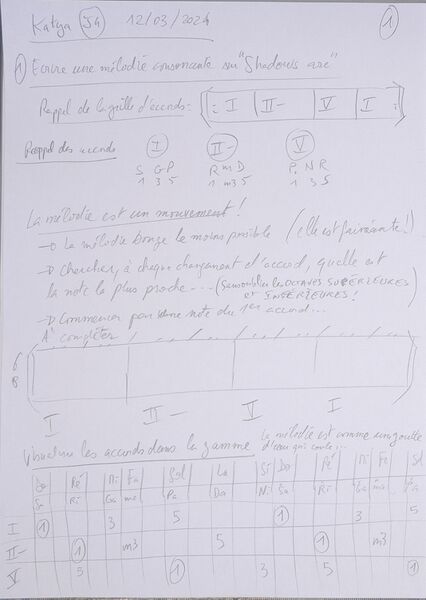 Katya J4 12/03/2024 1
1 Ecrire une mélodie consonante sur "Shadows are"
Rappel de la grille d'accords = I II- V I
Rappel des accords I II- V
S G P R m D P N R
1 3 5 1 m3 5 1 3 5
La mélodie est un mouvement !
La mélodie bouge le moins possible (elle est fainéante !)
Chercher, à chaque changement d'accord, quelle est
la note la plus proche... (sans oublier les OCTAVES SUPÉRIEURES
et INFÉRIEURES !
Commencer par une note du 1er accord...
A compléter
6
8
I II- V I
Visualiser les accords dans la gamme La mélodie est comme une goutte
d'eau qui coule...
Do Ré Mi Fa Sol La Si Do Ré Mi Fa Sol
Sa Ri Ga ma Pa Da Ni Sa Ri Ga ma Pa
I 1 3 5 1 3 5
II- 1 m3 5 1 m3
V 5 1 3 5 1